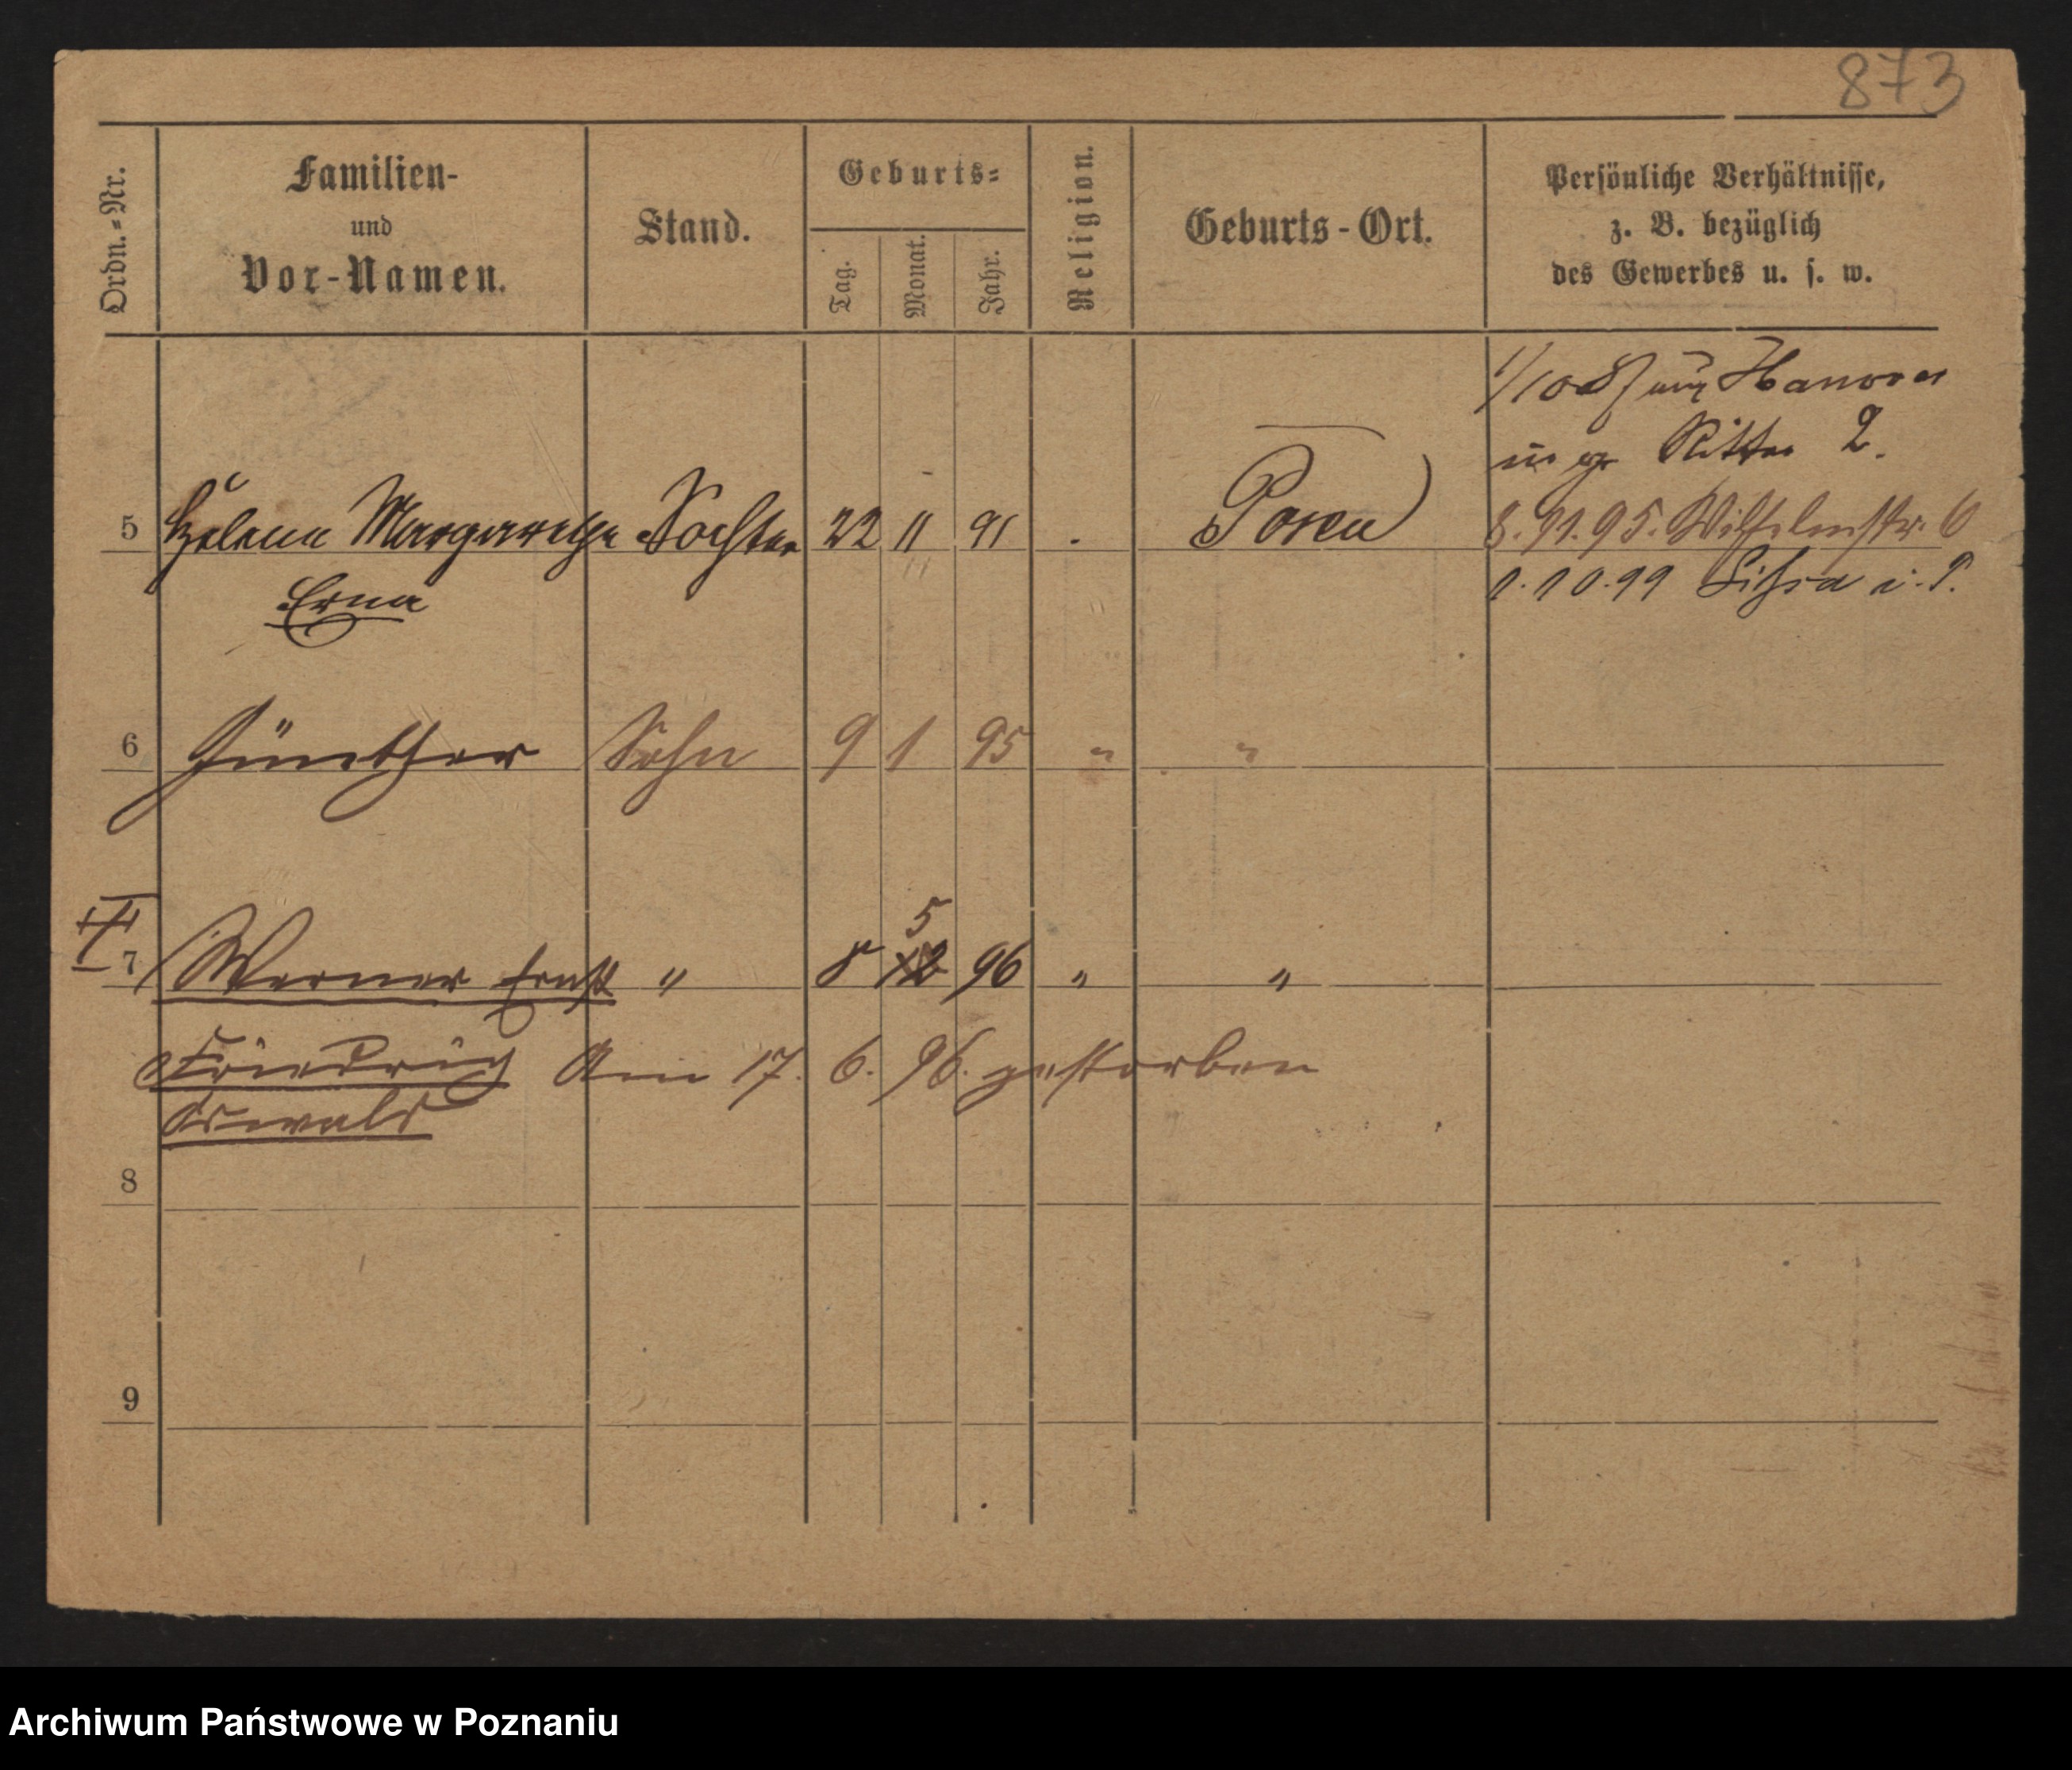 873
Ordn.-Nr.
Familien-
und
Vor-Namen.
Stand.
Geburts-
Tag.
Monat.
Jahr.
Religion.
Geburts-Ort.
Persönliche Verhältnisse,
z. B. bezüglich
des Gewerbes u. s. w.
Ritter 2.
5 Helene Margarethe Tochter 22 11 91 Posen 8.11.95. Wilhelmstr. 6
Erna
1.10.99 Lissa i. P.
6 Günther Sohn 9 1 95 " "
7 Werner Ernst " 8 5 96 " "
Friedrich Am 17. 6. 96. gestorben
Oswald
8
9
Archiwum Państwowe w Poznaniu